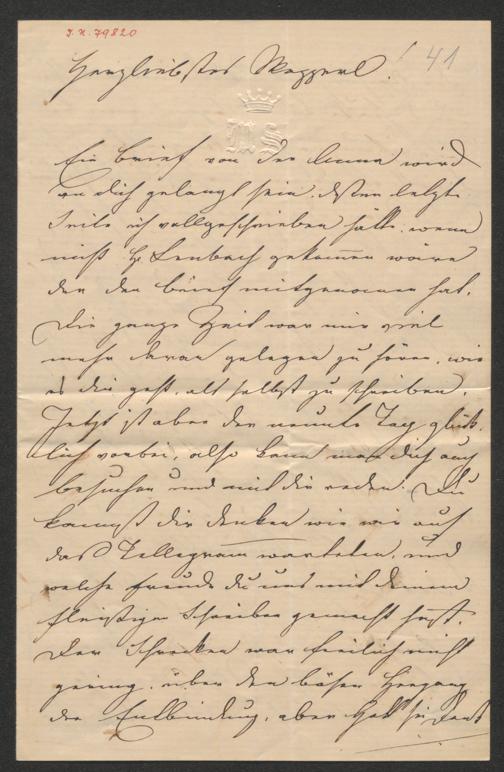 J.N. 79820
41
Herzliebstes Mopperl!
MS
Ein Brief von der Anna wird
an dich gelangt sein. dessen letzte
Seite ich vollgeschrieben hätte, wenn
nicht H. Lenbach gekommen wäre
der den Brief mitgenommen hat.
Die ganze Zeit war mir viel
mehr daran gelegen zu hören, wie
es dir geht, als selbst zu schreiben.
Jetzt ist aber der neunte Tag glück-
lich vorbei, also kann man dich auch
besuchen und mit dir reden. Du
kannst dir denken wie wir auf
das Tellegram warteten, und
welche Freude du uns mit deinem
fleißigen Schreiben gemacht hast.
Der Schrecken war freilich nicht
gering, über den bösen Hergang
der Entbindung, aber Gott sei Dank